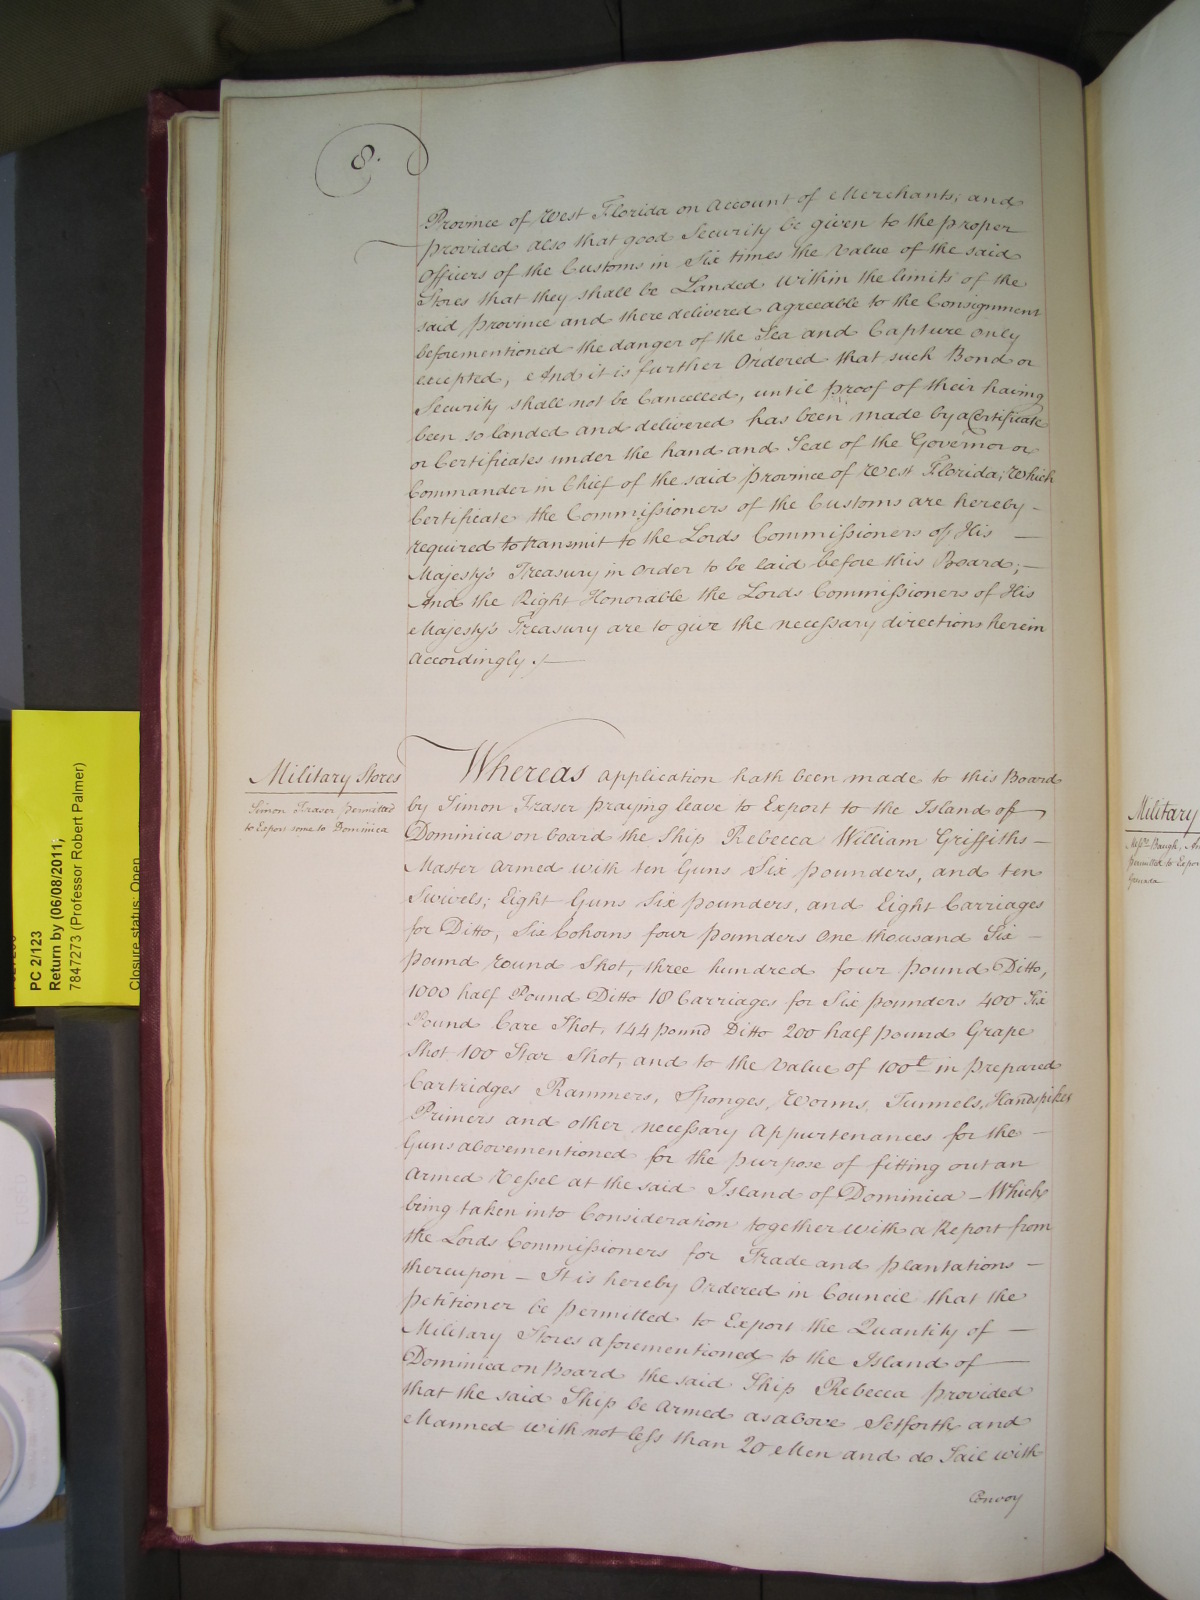 8.
Province of West Florida on Account of Merchants; and
provided also that good Security be given to the proper
Officers of the Customs in Six times the Value of the said
Stores that they shall be Landed within the limits of the
said province and there delivered agreeable to the Consignment
beforementioned the danger of the Sea and Capture only
excepted, And it is further Ordered that such Bond or
Security shall not be Cancelled, until proof of their having
been so landed and delivered has been made by a Certificate
or Certificates under the hand and Seal of the Governor or
Commander in Chief of the said province of West Florida; Which
Certificate the Commissioners of the Customs are hereby -
required to transmit to the Lords Commissioners of His —
Majesty's Treasury in order to be laid before this Board; -
And the Right Honorable the Lords Commissioners of His
Majesty's Treasury are to give the necessary directions herein
Accordingly ./—
Military Stores
Simon Fraser permitted
to Export some to Dominica
Whereas application hath been made to this Board
by Simon Fraser praying leave to Export to the Island of
Dominica on board the Ship Rebecca William Griffiths -
Master armed with ten Guns Six pounders, and ten
Swivels; Eight Guns Six pounders, and Eight Carriages
for Ditto, Six Cohorns four pounders One thousand Six -
pound round Shot, three hundred four pound Ditto,
1000 half Pound Ditto 18 Carriages for Six pounders 400 Six
Pound Care Shot, 144 pound Ditto 200 half pound Grape
Shot 100 Star Shot, and to the Value of 100£ in prepared
Cartridges Rammers, Sponges, Worms, Tunnels, Handspikes
Primers and other necessary Appurtenances for the -
Guns abovementioned for the purpose of fitting out an
Armed Vessel at the said Island of Dominica - Which
being taken into Consideration together with a Report from
the Lords Commissioners for Trade and plantations -
thereupon - It is hereby Ordered in Council that the
petitioner be permitted to Export the Quantity of —
Military Stores aforementioned to the Island of —
Dominica on Board the said Ship Rebecca provided
that the said Ship be Armed as above Setforth and
Manned with not less than 20 Men and do Sail with
Convoy
Military
Mess.rs Baugh,
permitted to Expor
Jamaica
PC 2/123
Return by (06/08/2011;
7847273 (Professor Robert Palmer)
Closure status: Open